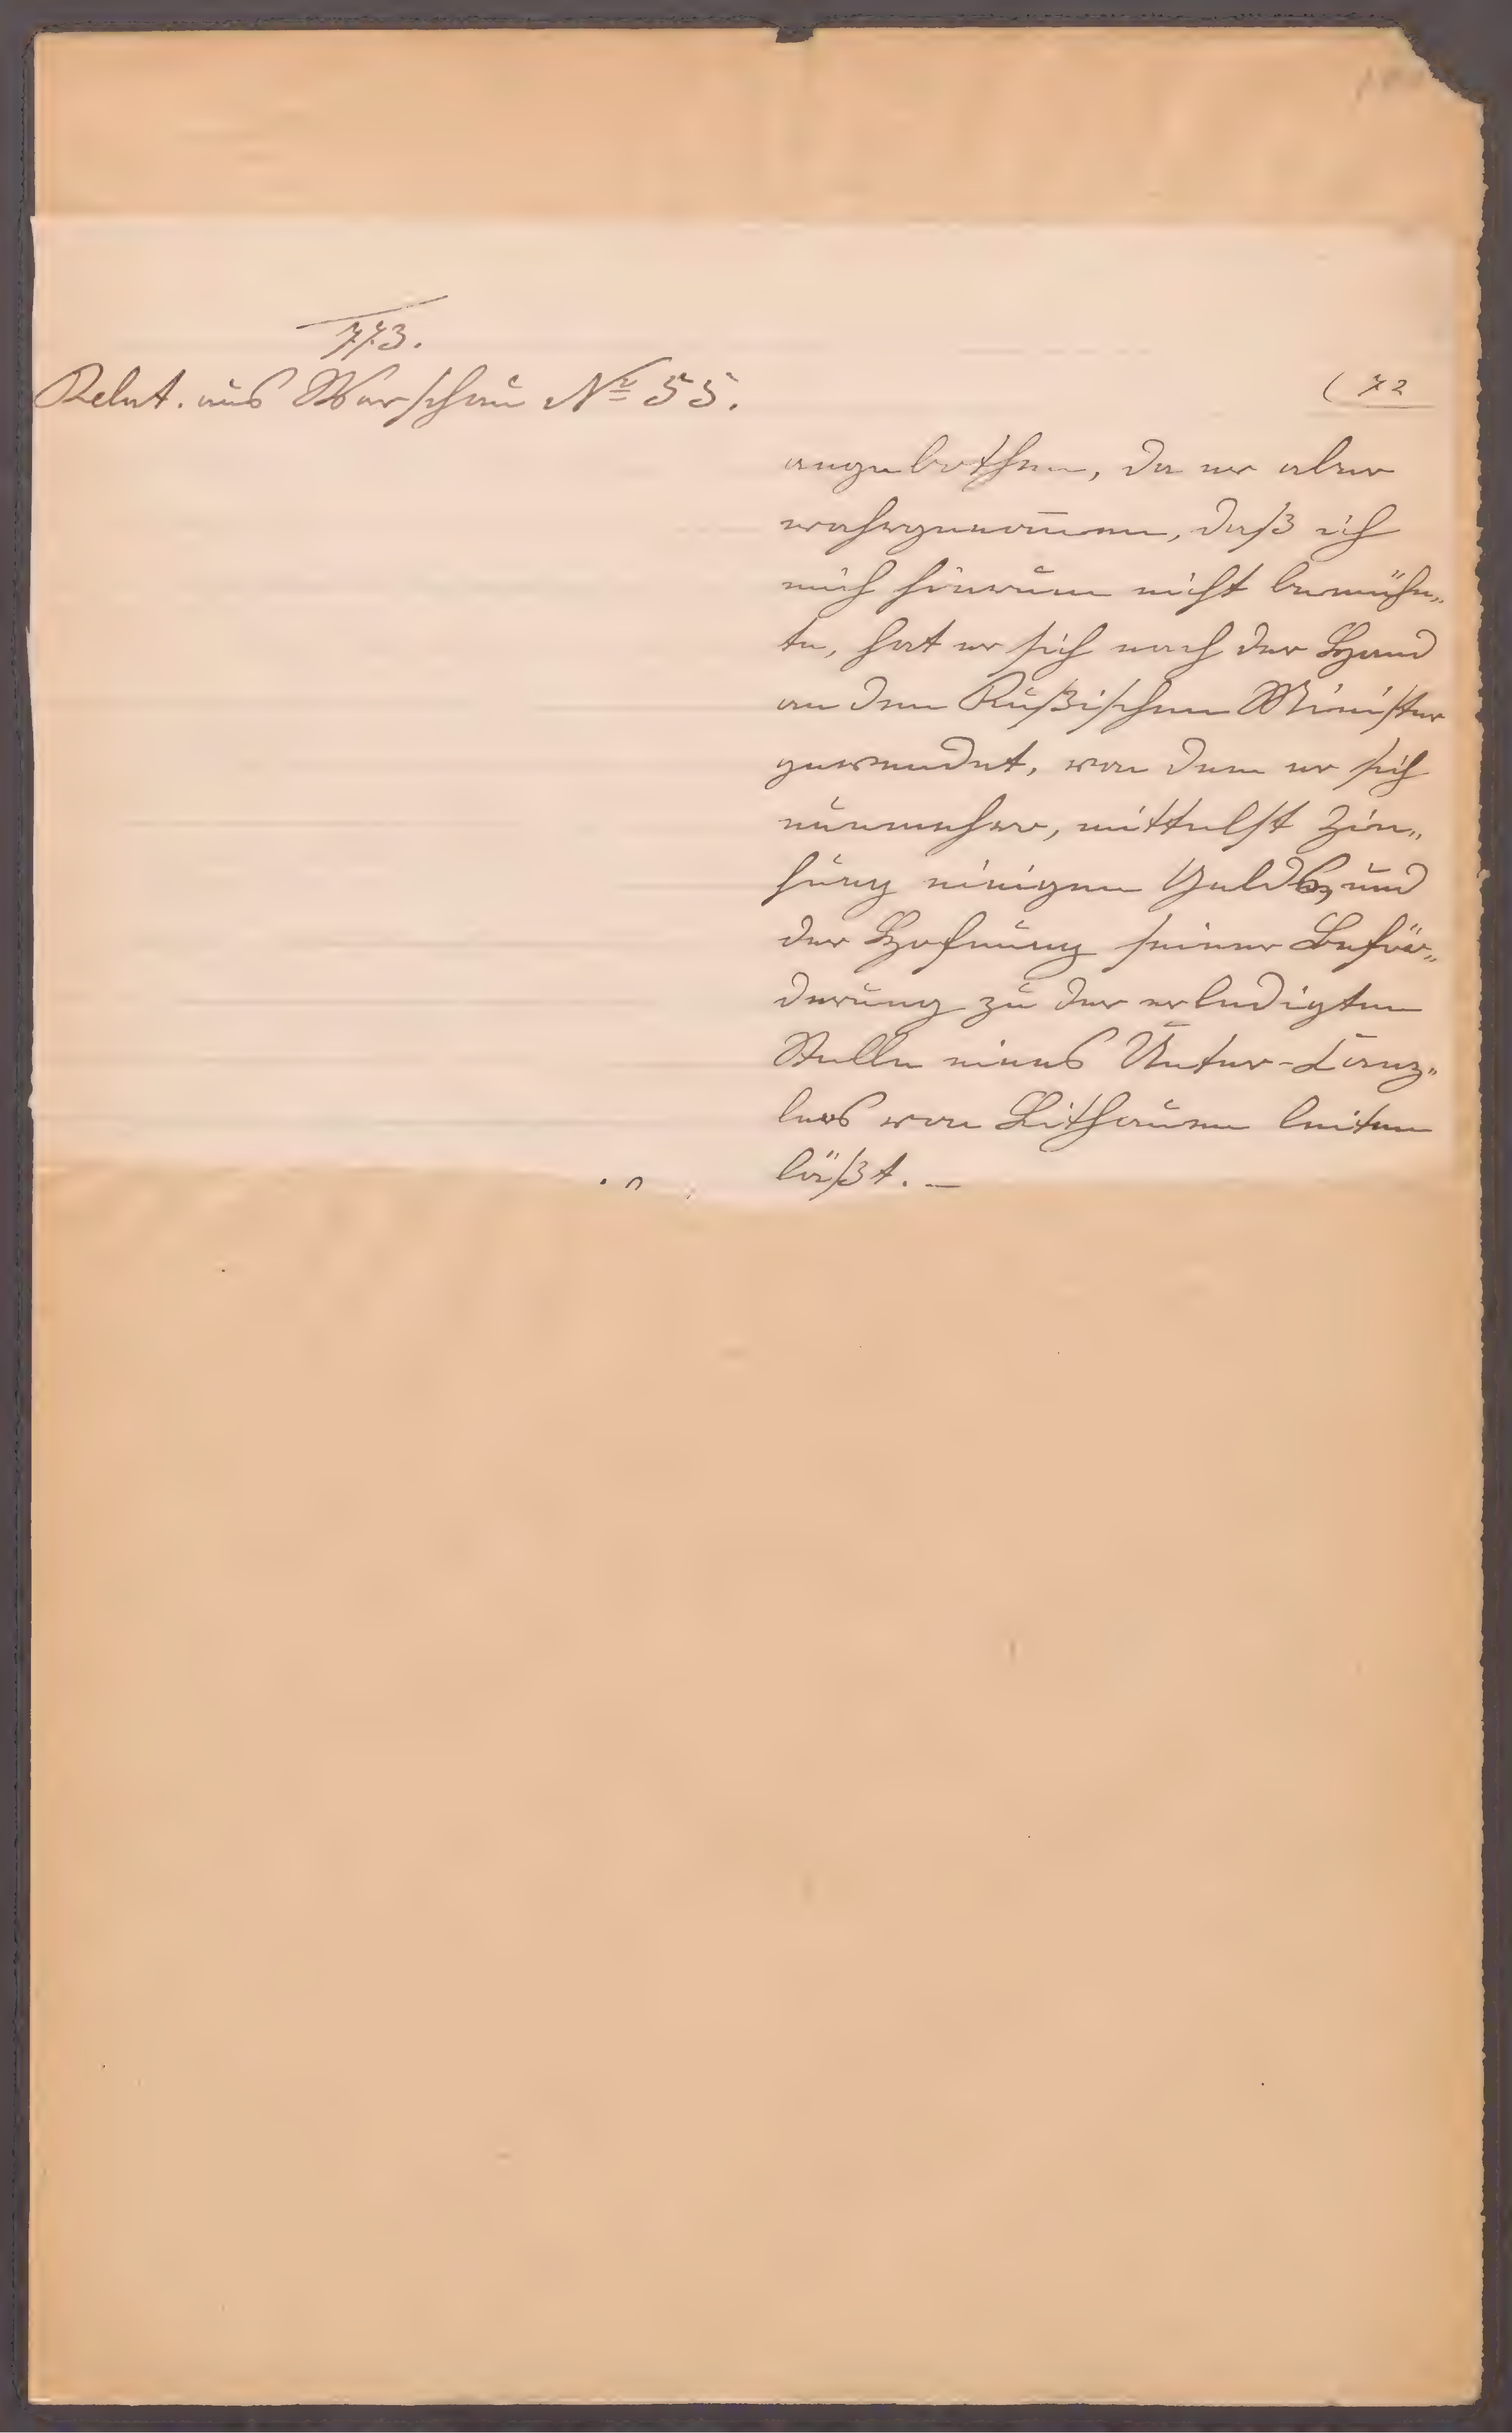 773.
Relat. aus Warschau Nº 55.
(72
angebothen, da er aber
wahrgenom̅en, daß ich
mich hierum nicht bemühe„
te, hat er sich nach der Hand
an den Rußischen Minister
gewendet, von dem er sich
nunmehro, mittelst Zie„
hung einigen Gelds, und
der Hofnung seiner Beför„
derung zu der erledigten
Stelle eines Unter-Canz„
lers von Lithauen leiten
läßt. —